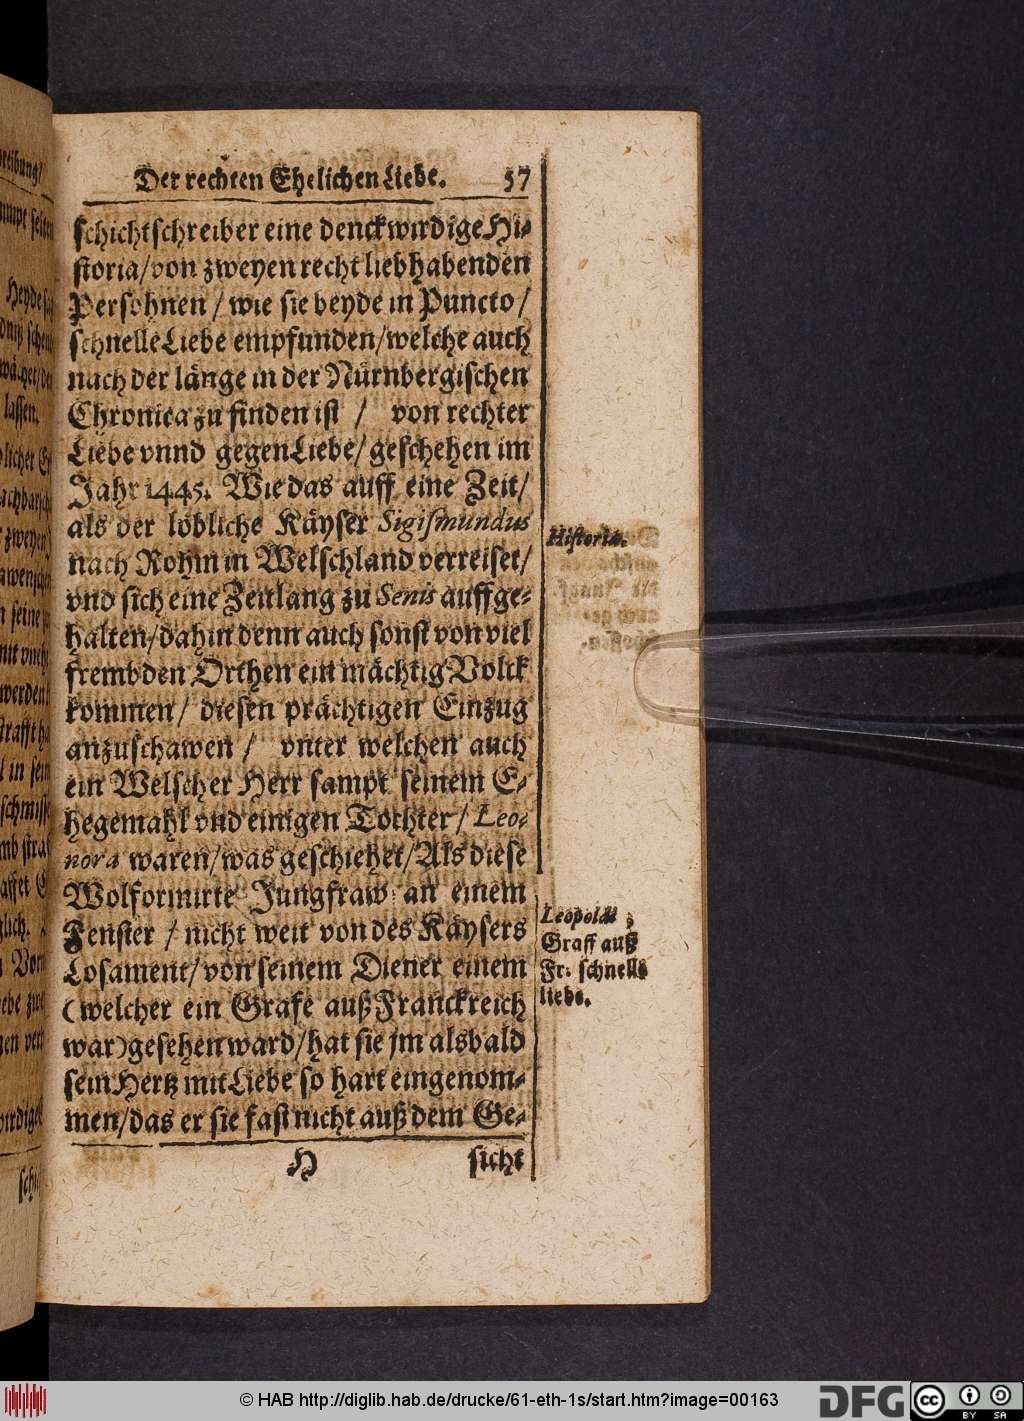 Der rechten Ehelichen Liebe. 57
schichtschreiber eine denckwirdige Hi-
storia/von zweyen recht liebhabenden
Persohnen / wie sie beyde in Puncto/
schnelle Liebe empfunden/welche auch
nach der länge in der Nürnbergischen
Chronica zu finden ist / von rechter
Liebe vnnd gegen Liebe/ geschehen im
Jahr 1445. Wie das auff eine Zeit/
als der löbliche Käyser Sigismundus
nach Rohm in Welschland verreiset/
vnd sich eine Zeitlang zu Senis auffge-
halten/dahin denn auch sonst von viel
frembden Orthen ein mächtig Volck
kommen/ diesen prächtigen Einzug
anzuschawen / vnter welchen auch
ein Welscher Herr sampt seinem E-
hegemahl vnd einigen Tochter/ Leo-
nora waren/was geschiehet/Als diese
Wolformirte Jungfraw an einem
Fenster / nicht weit von des Käysers
Losament/von seinem Diener einem
(welcher ein Grafe auß Franckreich
war) gesehen ward/hat sie jm alsbald
sein Hertz mit Liebe so hart eingenom-
men/das er sie fast nicht auß dem Ge-
H sicht
Historia.
Leopoldi
Graff auß
Fr. schnelle
liebe.
reibung/
lassen.
© HAB http://diglib.hab.de/drucke/61-eth-1s/start.htm?image=00163
DFG
cc
BY SA